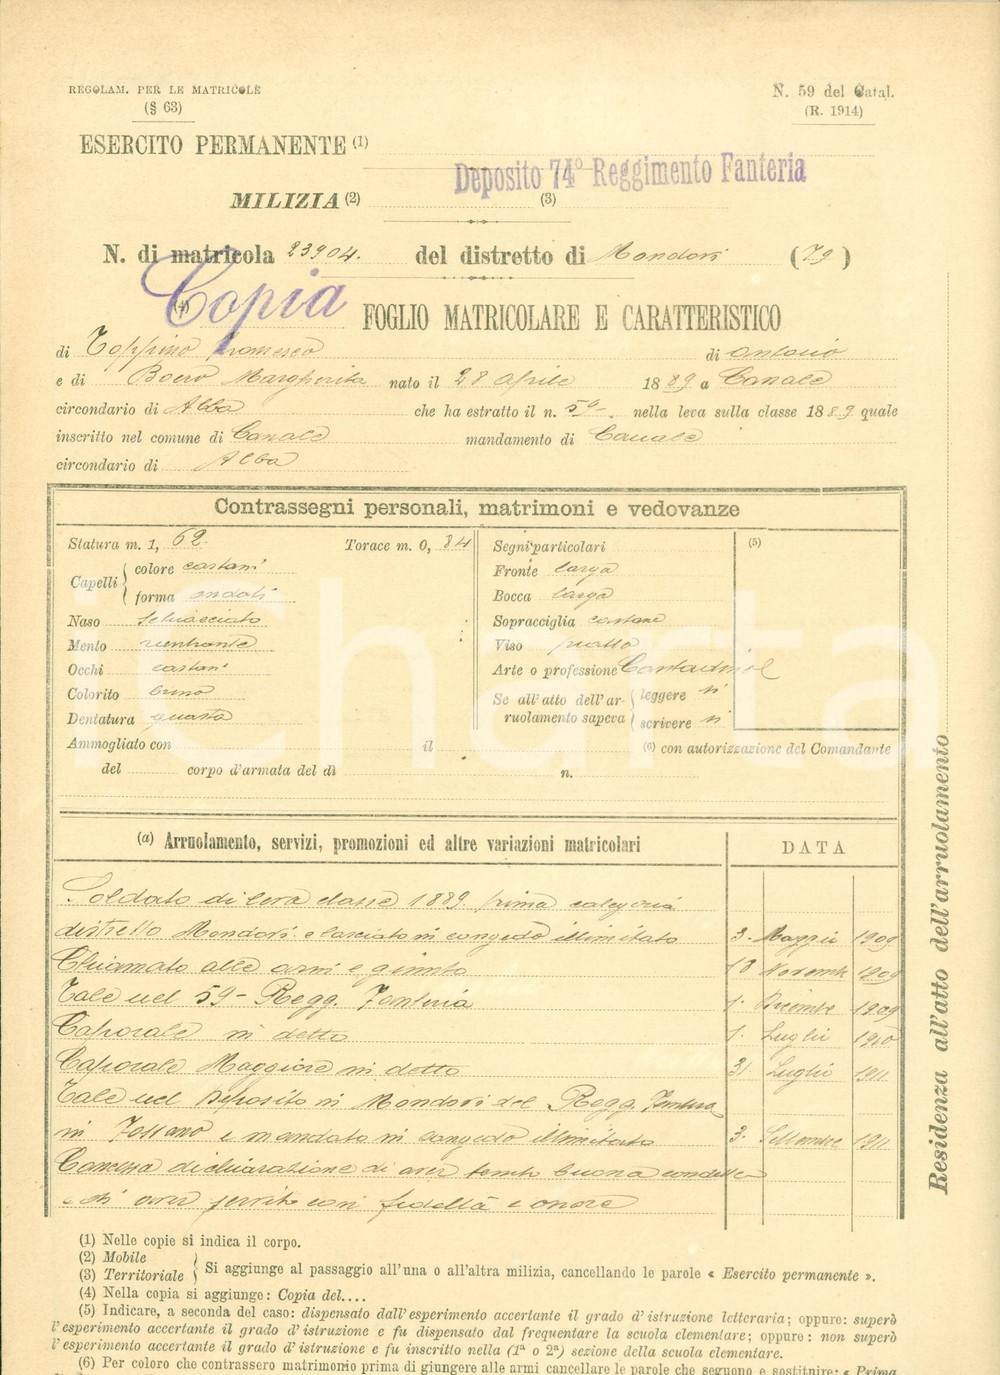 REGOLAM. PER LE MATRICOLE
(§ 63)
N. 59 del Catal.
(R. 1914)
ESERCITO PERMANENTE (1)
Deposito 74° Reggimento Fanteria
MILIZIA (2) (3)
N. di matricola 23904. del distretto di Mondovì (79)
Copia
(4) FOGLIO MATRICOLARE E CARATTERISTICO
di Toppino Francesco di Antonio
e di Boero Margherita nato il 28 Aprile 1889 a Canale
circondario di Alba che ha estratto il n. 50 nella leva sulla classe 1889 quale
inscritto nel comune di Canale mandamento di Canale
circondario di Alba
Contrassegni personali, matrimoni e vedovanze
Statura m. 1, 62. Torace m. 0, 84
Capelli colore castani
forma ondati
Naso schiacciato
Mento rientrante
Occhi castani
Colorito bruno
Dentatura guasta
Segni particolari
Fronte larga
Bocca larga
Sopracciglia castane
Viso piatto
Arte o professione Contadino
Se all'atto dell'arruolamento sapeva leggere si
scrivere si
(5)
Ammogliato con il (6) con autorizzazione del Comandante
del corpo d'armata del dì n.
(a) Arruolamento, servizi, promozioni ed altre variazioni matricolari DATA
Soldato di leva classe 1889 prima categoria
distretto Mondovì e lasciato in congedo illimitato 3. Maggio 1909
Chiamato alle armi e giunto 18 Novembre 1909
Tale nel 59 Regg. Fanteria 1. Dicembre 1909
Caporale in detto 1. Luglio 1910
Caporale Maggiore in detto 31 Luglio 1911
Tale nel Deposito in Mondovì del Regg. Fanteria
in Fossano e mandato in congedo illimitato 3. Settembre 1911
Concessa dichiarazione di aver tenuto buona condotta
e di aver servito con fedeltà e onore
Residenza all'atto dell'arruolamento
(1) Nelle copie si indica il corpo.
(2) Mobile
(3) Territoriale Si aggiunge al passaggio all'una o all'altra milizia, cancellando le parole « Esercito permanente ».
(4) Nella copia si aggiunge: Copia del....
(5) Indicare, a seconda del caso: dispensato dall'esperimento accertante il grado d'istruzione letteraria; oppure: superò
l'esperimento accertante il grado d'istruzione e fu dispensato dal frequentare la scuola elementare; oppure: non superò
l'esperimento accertante il grado d'istruzione e fu inscritto nella (1ª o 2ª) sezione della scuola elementare.
(6) Per coloro che contrassero matrimonio prima di giungere alle armi cancellare le parole che seguono e sostituire: « Prima
iCharta